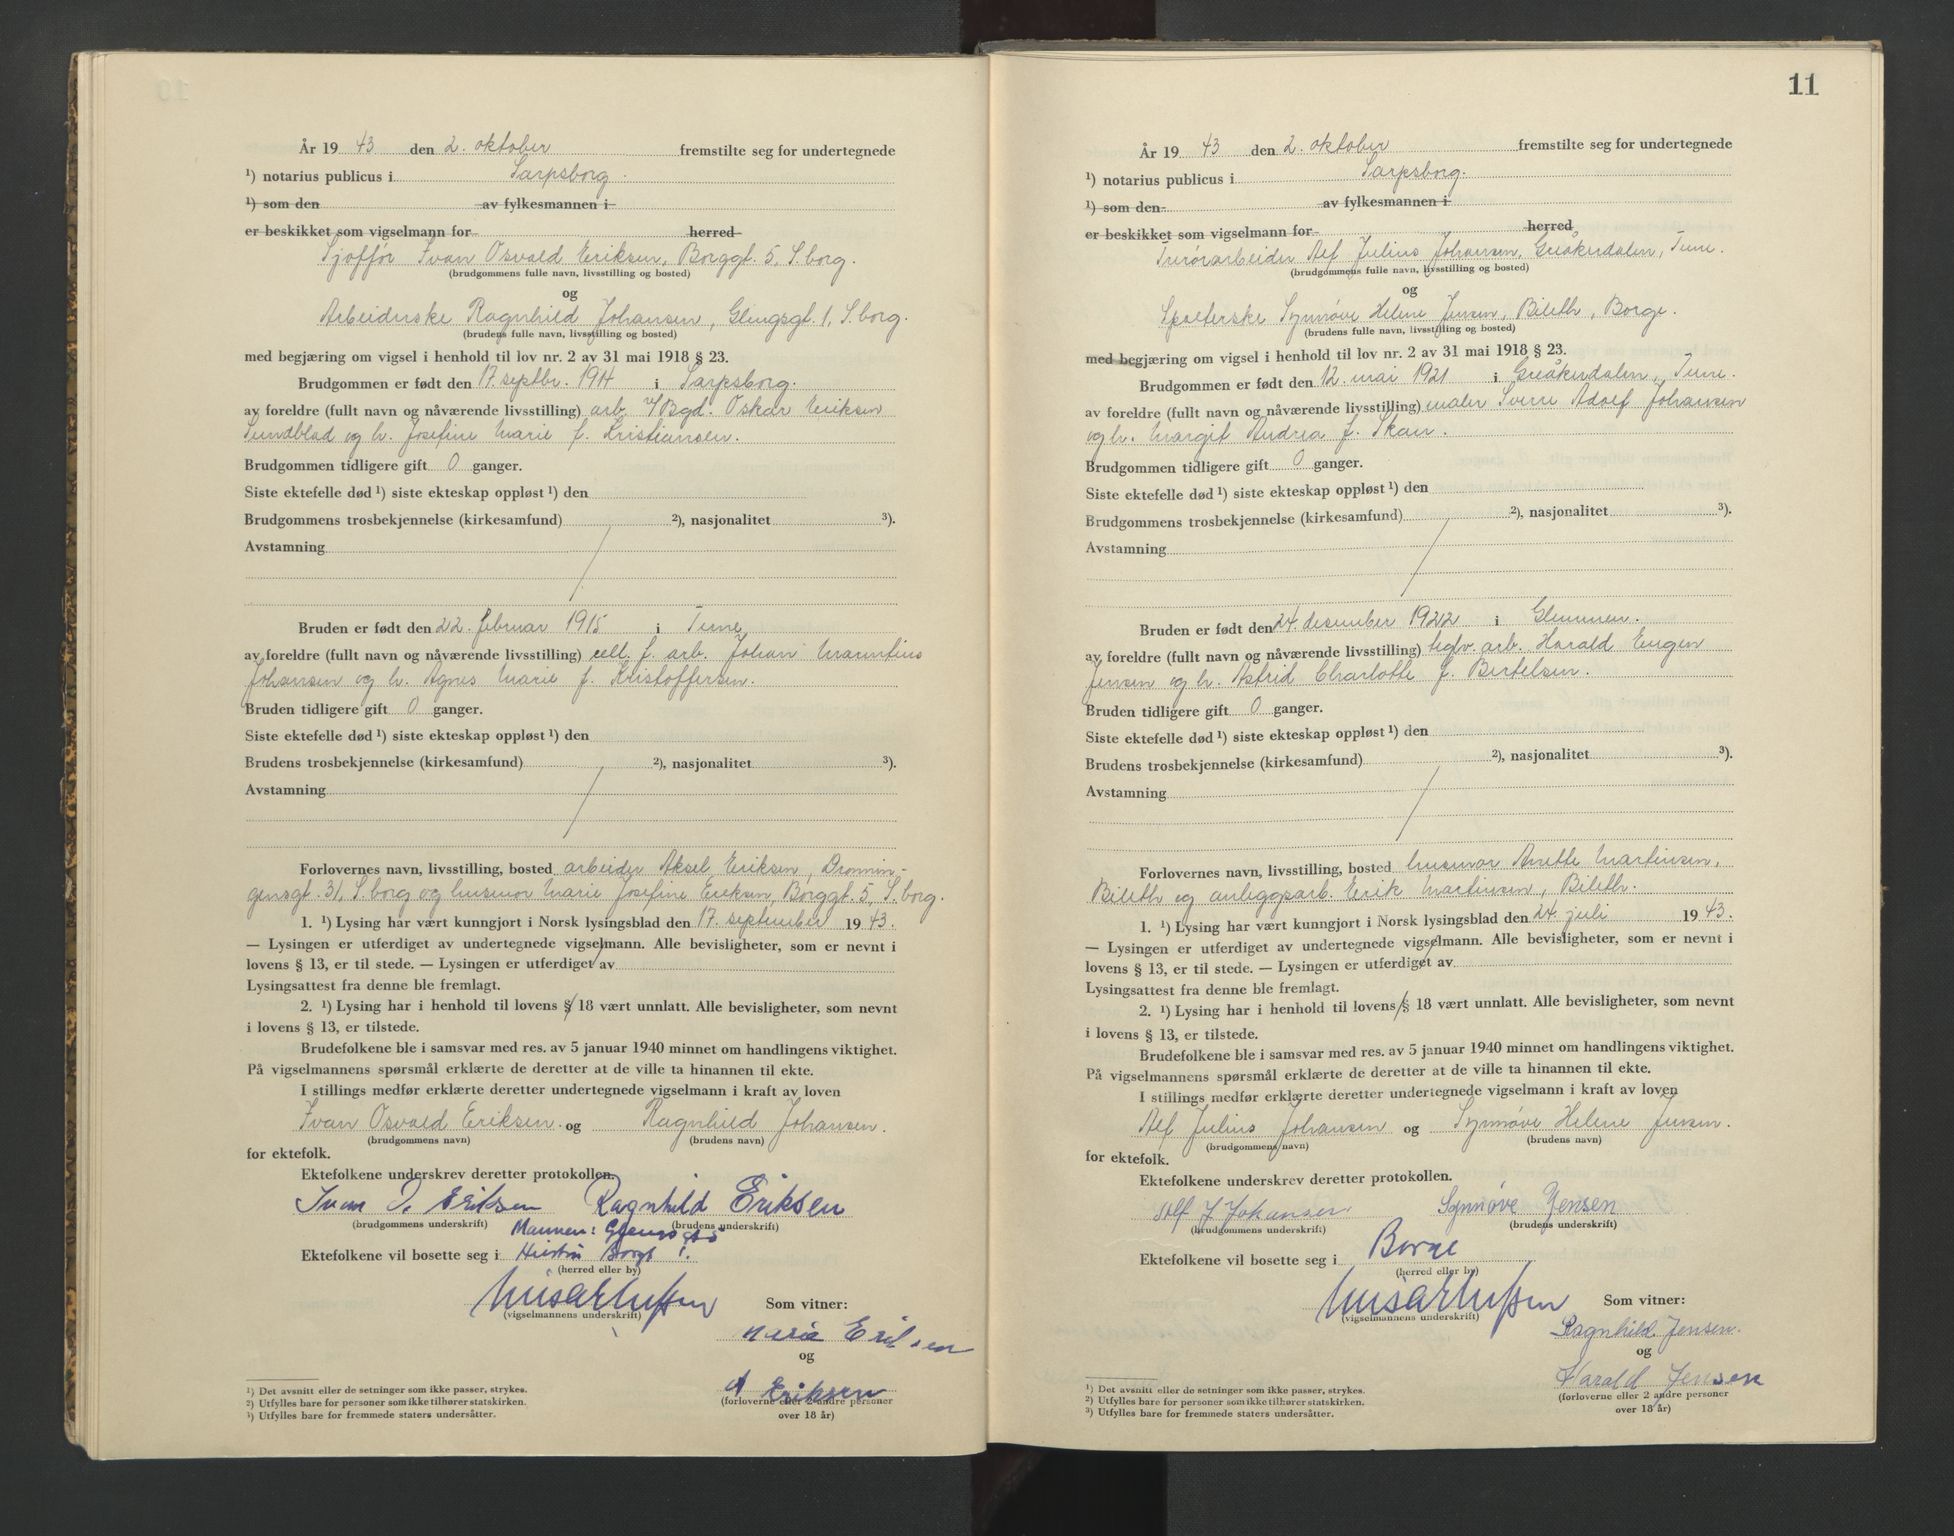 År 19 43 den 2. oktober fremstilte seg for undertegnede
¹) notarius publicus i Sarpsborg.
¹) som den av fylkesmannen i
er beskikket som vigselmann for herred
Sjåffør Ivan Osvald Eriksen, Borggt. 5, S.borg.
(brudgommens fulle navn, livsstilling og bosted)
og
Arbeiderske Ragnhild Johansen, Glengsgt. 1, S.borg.
(brudens fulle navn, livsstilling og bosted)
med begjæring om vigsel i henhold til lov nr. 2 av 31 mai 1918 § 23.
Brudgommen er født den 17. septbr. 1914 i Sarpsborg.
av foreldre (fullt navn og nåværende livsstilling) arb. v/Bgd. Oskar Eriksen
Sundblad og h. Josefine Marie f. Kristiansen.
Brudgommen tidligere gift 0 ganger.
Siste ektefelle død ¹) siste ekteskap oppløst ¹) den
Brudgommens trosbekjennelse (kirkesamfund) ²), nasjonalitet ³).
Avstamning
Bruden er født den 22. februar 1915 i Tune
av foreldre (fullt navn og nåværende livsstilling) cell. f. arb. Johan Marentius
Johansen og h. Agnes Marie f. Kristoffersen.
Bruden tidligere gift 0 ganger.
Siste ektefelle død ¹) siste ekteskap oppløst ¹) den
Brudens trosbekjennelse (kirkesamfund) ²), nasjonalitet ³).
Avstamning
Forlovernes navn, livsstilling, bosted arbeider Aksel Eriksen, Dronnin-
gensgt. 31, S.borg og husmor Marie Josefine Eriksen, Borggt. 5, S.borg.
1. ¹) Lysing har vært kunngjort i Norsk lysingsblad den 17. september 19 43.
— Lysingen er utferdiget av undertegnede vigselmann. Alle bevisligheter, som er nevnt i
lovens § 13, er til stede. — Lysingen er utferdiget av
Lysingsattest fra denne ble fremlagt.
2. ¹) Lysing har i henhold til lovens § 18 vært unnlatt. Alle bevisligheter, som nevnt
i lovens § 13, er tilstede.
Brudefolkene ble i samsvar med res. av 5 januar 1940 minnet om handlingens viktighet.
På vigselmannens spørsmål erklærte de deretter at de ville ta hinannen til ekte.
I stillings medfør erklærte deretter undertegnede vigselmann i kraft av loven
Ivan Osvald Eriksen. og Ragnhild Johansen.
(brudgommens navn) (brudens navn)
for ektefolk.
Ektefolkene underskrev deretter protokollen.
Ivan O. Eriksen Ragnhild Eriksen
(brudgommens underskrift) (brudens underskrift)
Mannen:
Ektefolkene vil bosette seg i Hustru Borgt
(herred eller by)
(vigselmannens underskrift) Som vitner:
Maria Eriksen
og
A Eriksen
(forloverne eller 2 andre personer
over 18 år)
¹) Det avsnitt eller de setninger som ikke passer, strykes.
²) Utfylles bare for personer som ikke tilhører statskirken.
³) Utfylles bare for fremmede staters undersåtter.
11
År 19 43 den 2. oktober fremstilte seg for undertegnede
¹) notarius publicus i Sarpsborg.
¹) som den av fylkesmannen i
er beskikket som vigselmann for herred
Alf Julius Johansen, Greåkerdalen, Tune.
(brudgommens fulle navn, livsstilling og bosted)
og
Spolerske Synnøve Helene Jensen, Bileth, Borge.
(brudens fulle navn, livsstilling og bosted)
med begjæring om vigsel i henhold til lov nr. 2 av 31 mai 1918 § 23.
Brudgommen er født den 12. mai 1921 i Greåkerdalen, Tune.
av foreldre (fullt navn og nåværende livsstilling) maler Sverre Adolf Johansen
og h. Margit Andrea f. Skau.
Brudgommen tidligere gift 0 ganger.
Siste ektefelle død ¹) siste ekteskap oppløst ¹) den
Brudgommens trosbekjennelse (kirkesamfund) ²), nasjonalitet ³).
Avstamning
Bruden er født den 24. desember 1922 i Glemmen.
av foreldre (fullt navn og nåværende livsstilling) teglv. arb. Harald Eugen
Jensen og h. Astrid Charlotte f. Bertelsen.
Bruden tidligere gift 0 ganger.
Siste ektefelle død ¹) siste ekteskap oppløst ¹) den
Brudens trosbekjennelse (kirkesamfund) ²), nasjonalitet ³).
Avstamning
Forlovernes navn, livsstilling, bosted husmor Anette Martinsen,
Bileth og anleggsarb. Erik Martinsen, Bileth.
1. ¹) Lysing har vært kunngjort i Norsk lysingsblad den 24. juli 19 43.
— Lysingen er utferdiget av undertegnede vigselmann. Alle bevisligheter, som er nevnt i
lovens § 13, er til stede. — Lysingen er utferdiget av
Lysingsattest fra denne ble fremlagt.
2. ¹) Lysing har i henhold til lovens § 18 vært unnlatt. Alle bevisligheter, som nevnt
i lovens § 13, er tilstede.
Brudefolkene ble i samsvar med res. av 5 januar 1940 minnet om handlingens viktighet.
På vigselmannens spørsmål erklærte de deretter at de ville ta hinannen til ekte.
I stillings medfør erklærte deretter undertegnede vigselmann i kraft av loven
Alf Julius Johansen og Synnøve Helene Jensen.
(brudgommens navn) (brudens navn)
for ektefolk.
Ektefolkene underskrev deretter protokollen.
Alf J Johansen Synnøve Jensen
(brudgommens underskrift) (brudens underskrift)
Ektefolkene vil bosette seg i Borge
(herred eller by)
(vigselmannens underskrift) Som vitner:
Ragnhild Jensen.
og
Harald Jensen
(forloverne eller 2 andre personer
over 18 år)
¹) Det avsnitt eller de setninger som ikke passer, strykes.
²) Utfylles bare for personer som ikke tilhører statskirken.
³) Utfylles bare for fremmede staters undersåtter.